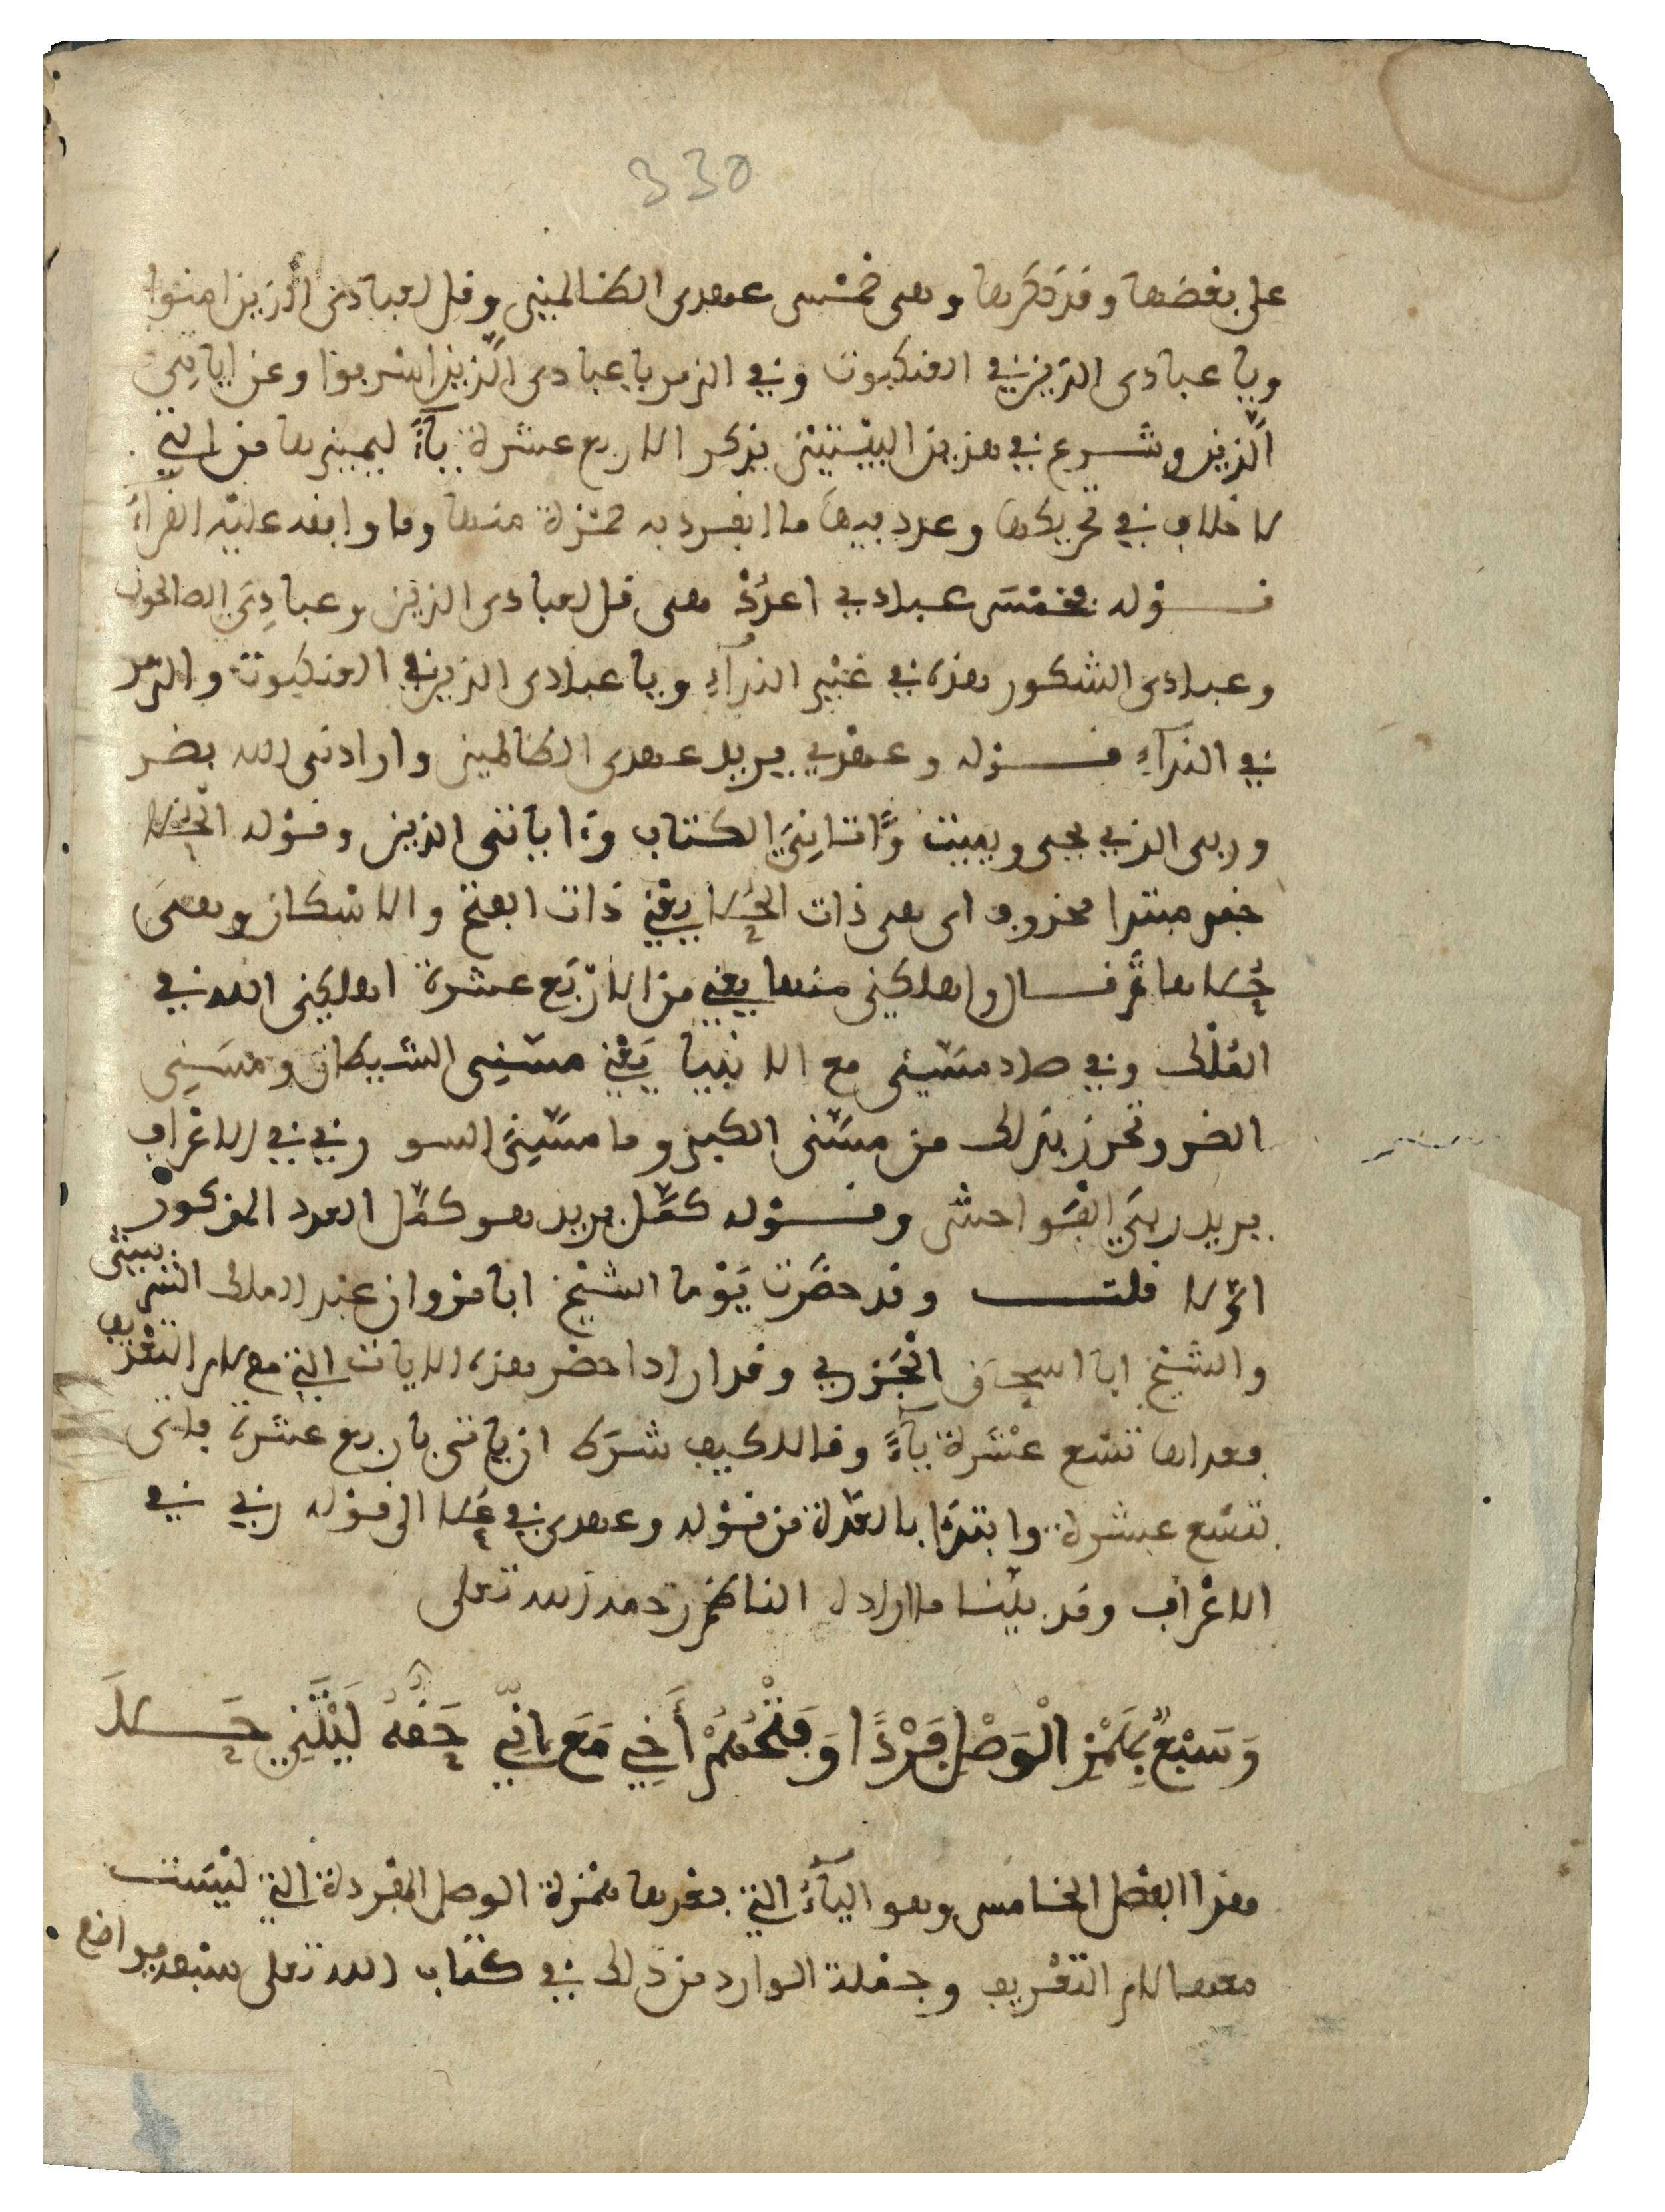 330
على بعضها وقد ذكرها وهي خمس عهدى الظالمين وقل لعبادى الذين امنوا
ويا عبادى الذين في العنكبوت وفي الزمر يا عبادى الَّذين اسرفوا وعن اياتي
الَّذين وشرع في هذين البيْتيْن بذكر الاربع عشرة ياءً ليميزها من التي
لا خلاف في تحريكها وعدد فيها ما انفرد به حمْزة منها وما وافقه عليْه القراءُ
قوْله فخمْسَ عبادي اعدُدْ هى قل لعبادى الذين وعبادِيَ الصالحون
وعبادى الشكور هذه في غيْر الندآءِ ويا عبادى الذين في العنكبوت والزمر
في الندآءِ قوْله وعهْدي يريد عهدى الظالمين وارادنى الله بضر
وربى الذي يحى ويميت وَّاتانِيَ الكتاب وَاياتى الذين وقوْله الحُلا
خبر مبتدا محذوف اى هى ذات الحُلا يعْني ذات الفتح والاسْكان وهى
حُلاها ثم قال واهلكنى منها يعْني من الارْبَع عشرة اهلكنى الله في
المُلْك وفي صاد مسَّني مع الانبيا يَعْني مسّنِى الشيطان ومسّنِى
الضر وتحرز بذلك من مسَّنى الكبر وما مسَّنِىَ السو ربي في الاعْراف
يريد ربّيَ الفَواحش وقوْله كمَّل يريد هو كمَّل العدد المذكور
اوَّلا قلت وقد حضَرْت يَوْما الشيْخ ابا مرْوان عبد الملك الشريشى
والشيْخ ابا اسحاق الجَزري وقد ارادا حضر هذه اليات التي مع لام التعْريف
فعداها تسْع عشْرة ياءً وقالا كيف شرَط ان ياتى باربع عشْرة فاتى
بتسْع عشرة وابتدَا بالعدَّة من قوْله وعهدى في عُلا الى قوْله ربي في
الاعْراف وقد بيَّنا ما اراد الناظم رحمه الله تعلى
وَسَبْعٌ بِهَمْزِ الْوَصْلِ فَرْدًا وَفَتْحُهُمْ أَخِي مَعَ إِنِّي حَقُّهُ لَيْتَنِي حَلَا
هذا الفصْل الخامس وهو اليآءُ التي بعْدها همْزة الوصل المفْردة التي ليْست
معها لام التعْريف وجمْلة الوارد من ذلك في كتاب الله تعلى سبْعة مواضع